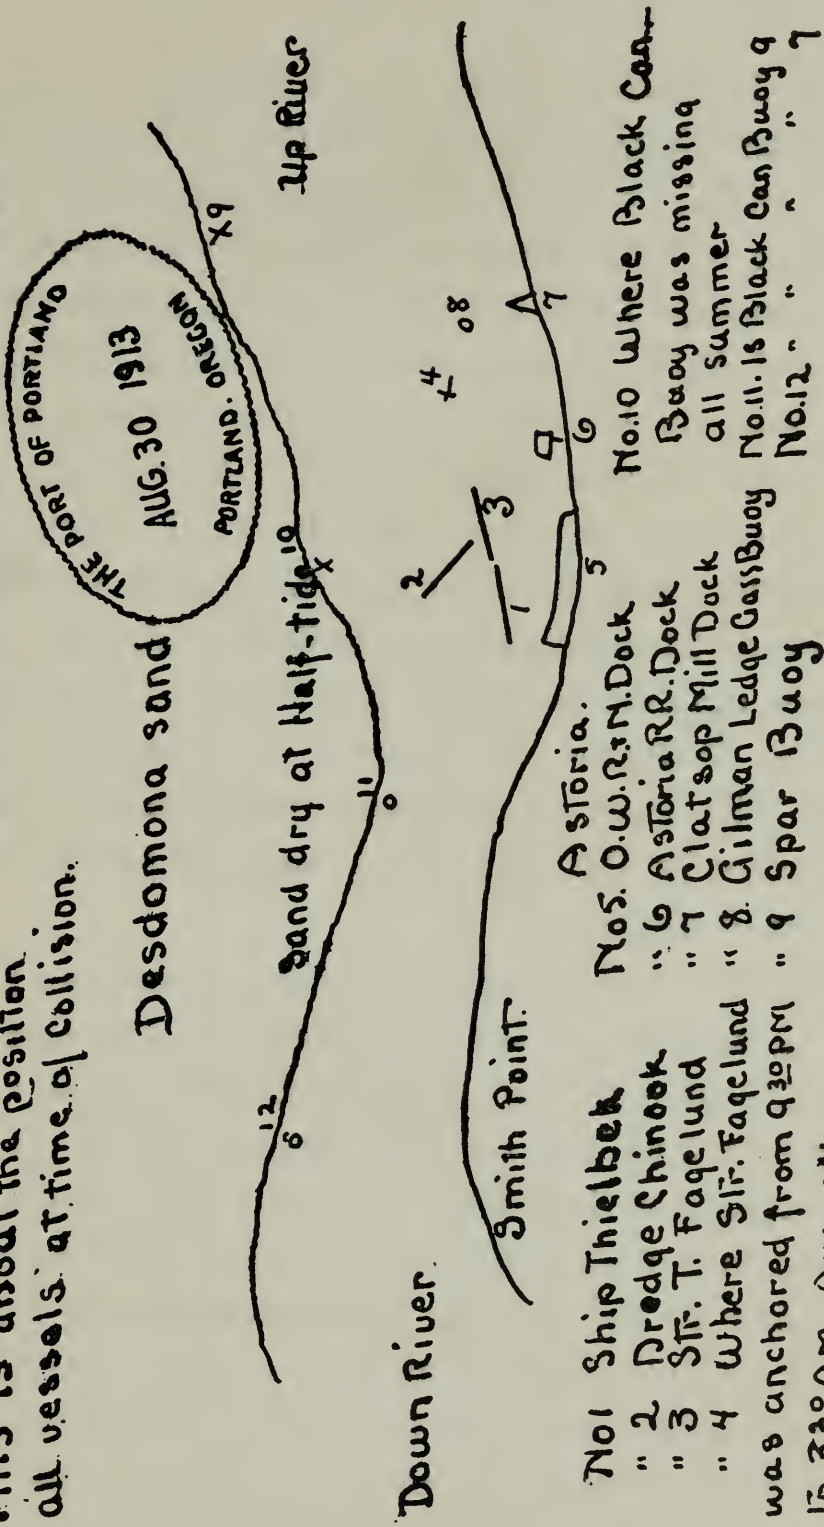 This is about the position
all vessels at time of collision.
THE PORT OF PORTLAND
AUG. 30 1913
PORTLAND. OREGON
Desdomona sand
Up River
X9
Sand dry at Half-tide
10
X
11
o
12
o
4
+
o8
2
3
1
7
6
5
Down River.
Smith Point.
Astoria.
No1 Ship Thielbek
" 2 Dredge Chinook
" 3 Str. T. Fagelund
" 4 Where Str. Fagelund
was anchored from 9 30 PM
No5. O.W.R.+N.Dock
" 6 Astoria RR. Dock
" 7 Clatsop Mill Dock
" 8. Gilman Ledge Gass Buoy
" 9 Spar Buoy
No.10 Where Black Can
Buoy was missing
all summer
No.11. Is Black Can Buoy 9
No.12 " " " " 7